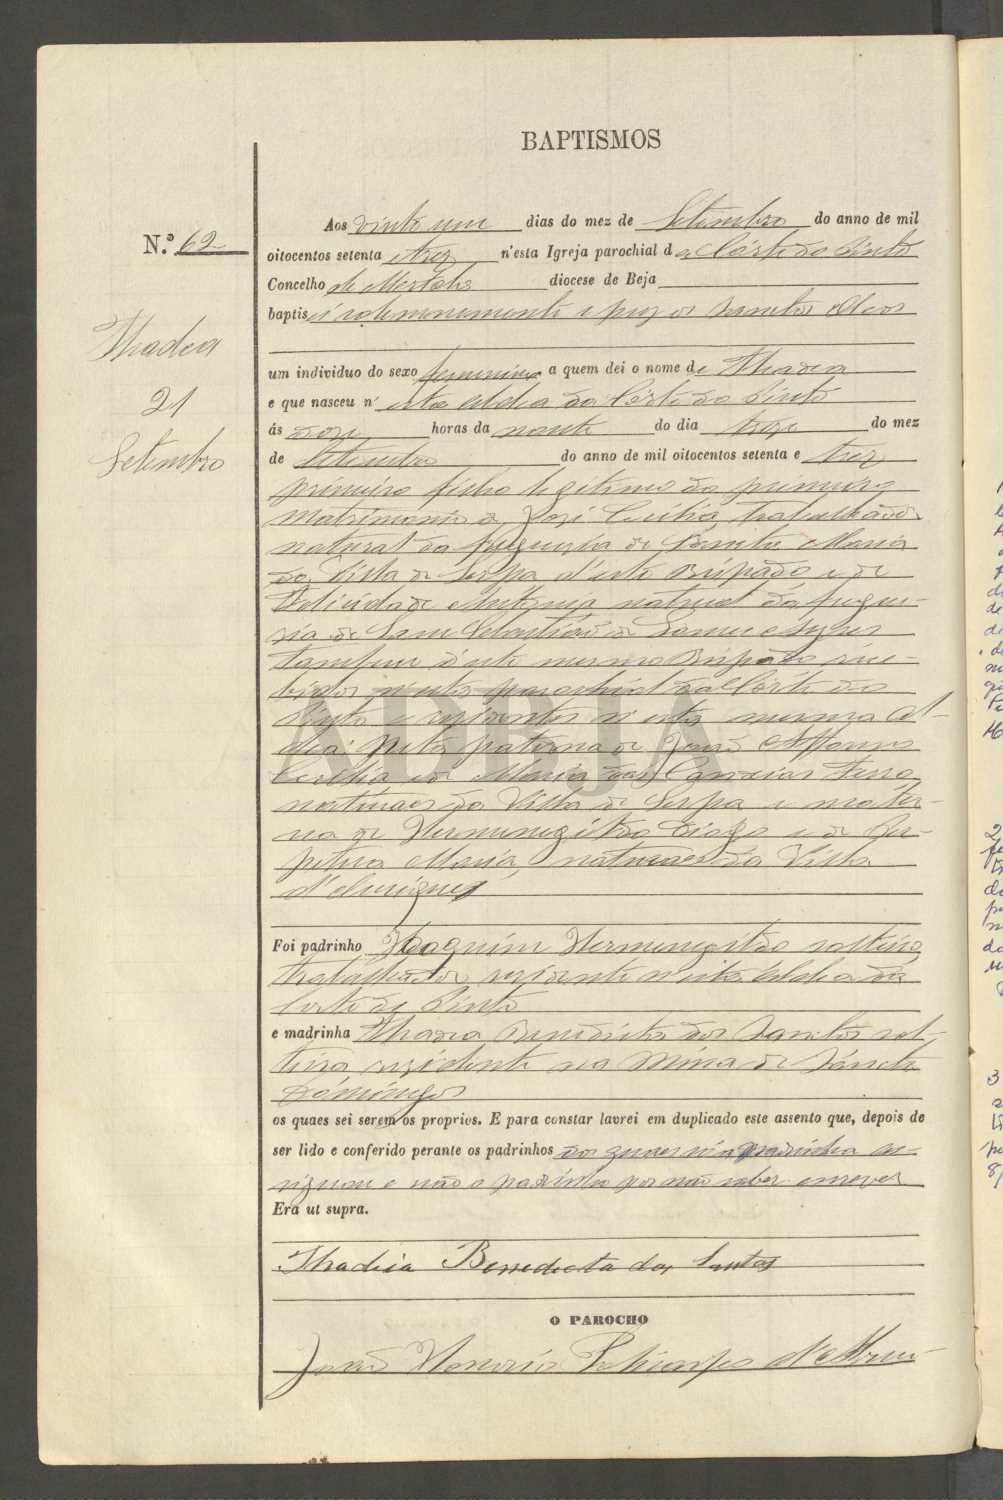 BAPTISMOS
N.º 62
Thadea
21
Setembro
Aos vinte um dias do mez de Setembro do anno de mil
oitocentos setenta e trez n'esta Igreja parochial da Côrte do Pinto
Concelho de Mertola diocese de Beja
baptisei solemnemente e puz os Sanctos Oleos
um individuo do sexo femenino a quem dei o nome de Thadea
e que nasceu n'esta Aldea da Côrte do Pinto
ás doze horas da noute do dia treze do mez
de Setembro do anno de mil oitocentos setenta e trez
primeiro filho legitimo do primeiro
Matrimonio de José Cecilia, trabalhador
natural da freguezia de Santa Maria
da Villa de Serpa d'este Bispado e de
Felicidade Antonia natural da fregue-
sia de Sam Sebastião de
tambem d'este mesmo Bispado rece-
bidos n'esta parochial da Côrte do
Pinto e residentes n'esta mesma Al-
dea: Neta paterna de João Affonso
Cecilia e de Maria das Candeias Ferro
naturaes da Villa de Serpa e mater-
na de Hermenegildo Diogo e de Per-
petua Maria, naturaes da Villa
d'Ourique
Foi padrinho Joaquim Hermenegildo solteiro
trabalhador residente n'esta Aldea da
Corte do Pinto
e madrinha Thadea Benedicta dos Santos sol-
teira residente na Mina de Sancto
Domingos
os quaes sei serem os proprios. E para constar lavrei em duplicado este assento que, depois de
ser lido e conferido perante os padrinhos dos quaes só a madrinha as-
signou e não o padrinho por não saber escrever
Era ut supra.
Thadeia Benedicta dos Santos
O PAROCHO
João Honorio Policarpo d'
ADBJA